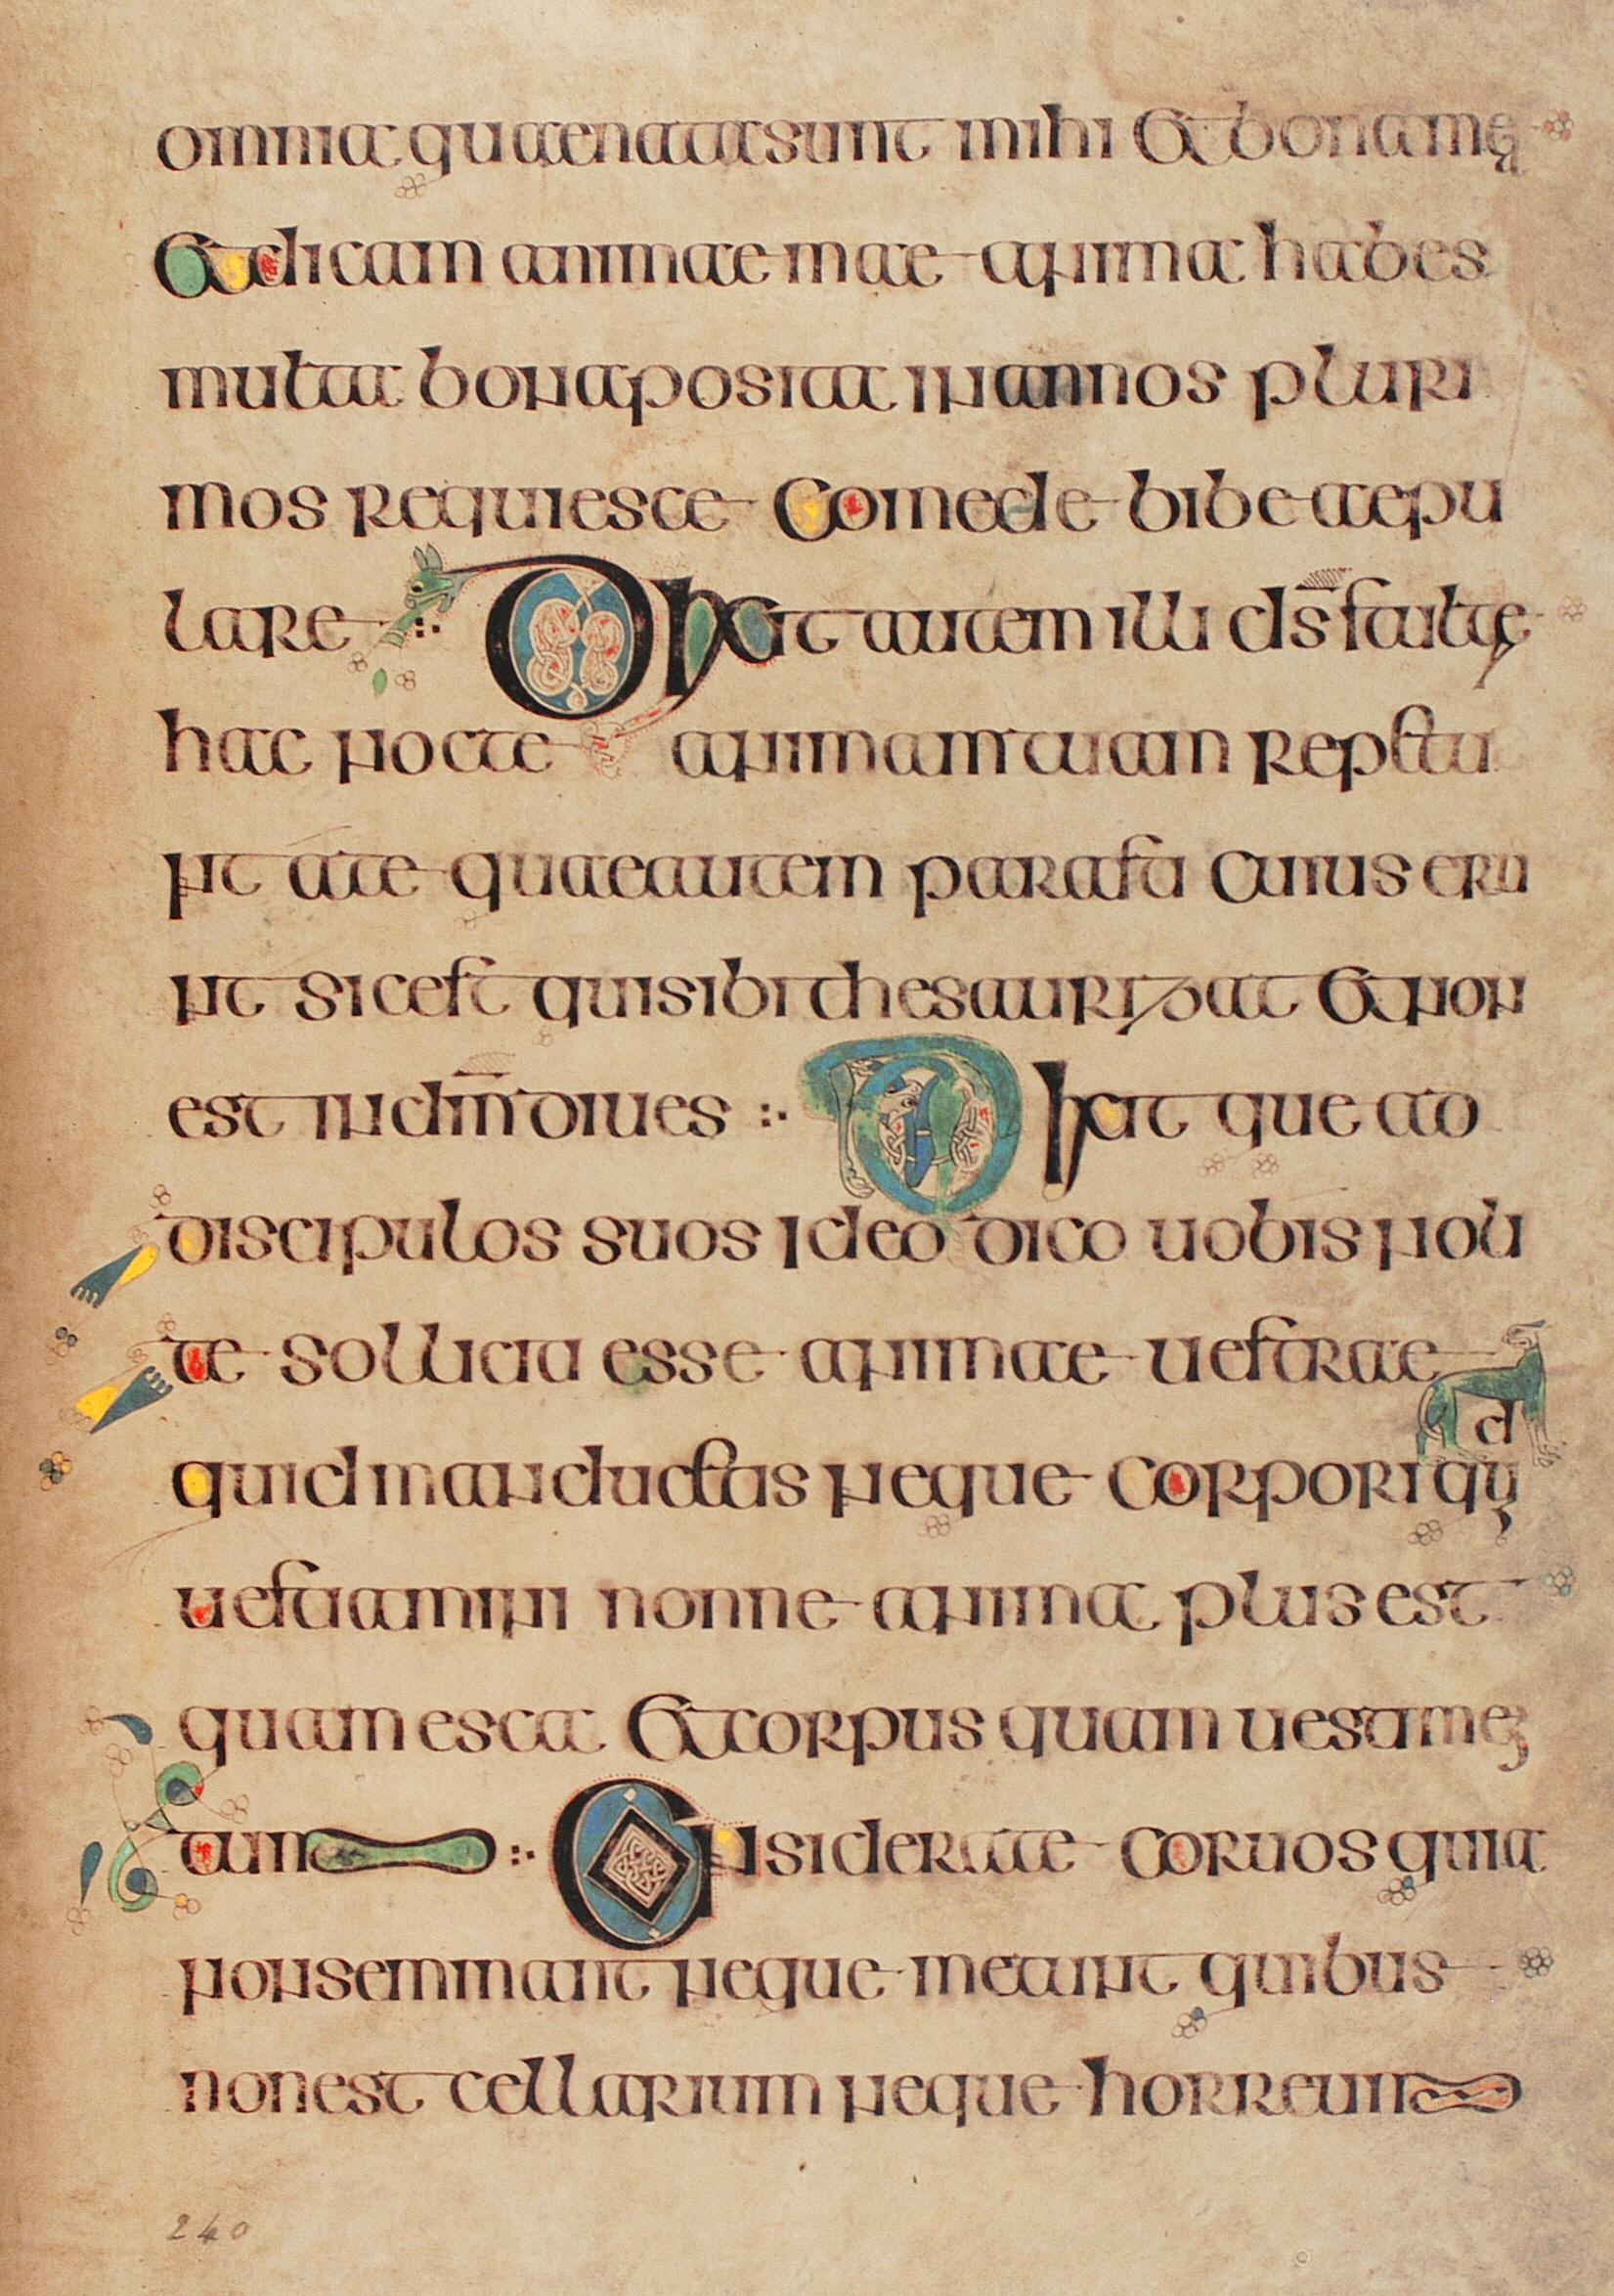 omnia quae nata sunt mihi et bona mea
et dicam animae mae anima habes
multa bona posita in annos pluri
mos requiesce comede bibe aepu
lare Dixit autem illi d̄s stulte
hac nocte animam tuam repetu
nt a te quae autem parasti cuius eru
nt sic est qui sibi thesaurizat et non
est in d̄m diues Dixit que ad
discipulos suos ideo dico uobis noli
te solliciti esse animae uestrae
quid manducetis neque corpori quid
uestiamini nonne anima plus est
quam esca et corpus quam uestimen
tum Considerate coruos quia
non seminant neque metunt quibus
non est cellarium neque horreum
240